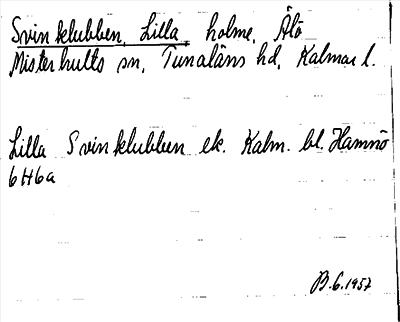 Svinklubben, Lilla, holme, Älö
Misterhults sn, Tunaläns hd, Kalmar l.
Lilla Svinklubben ek. Kalm. bl. Hamnö
6H6a
B.G.1957